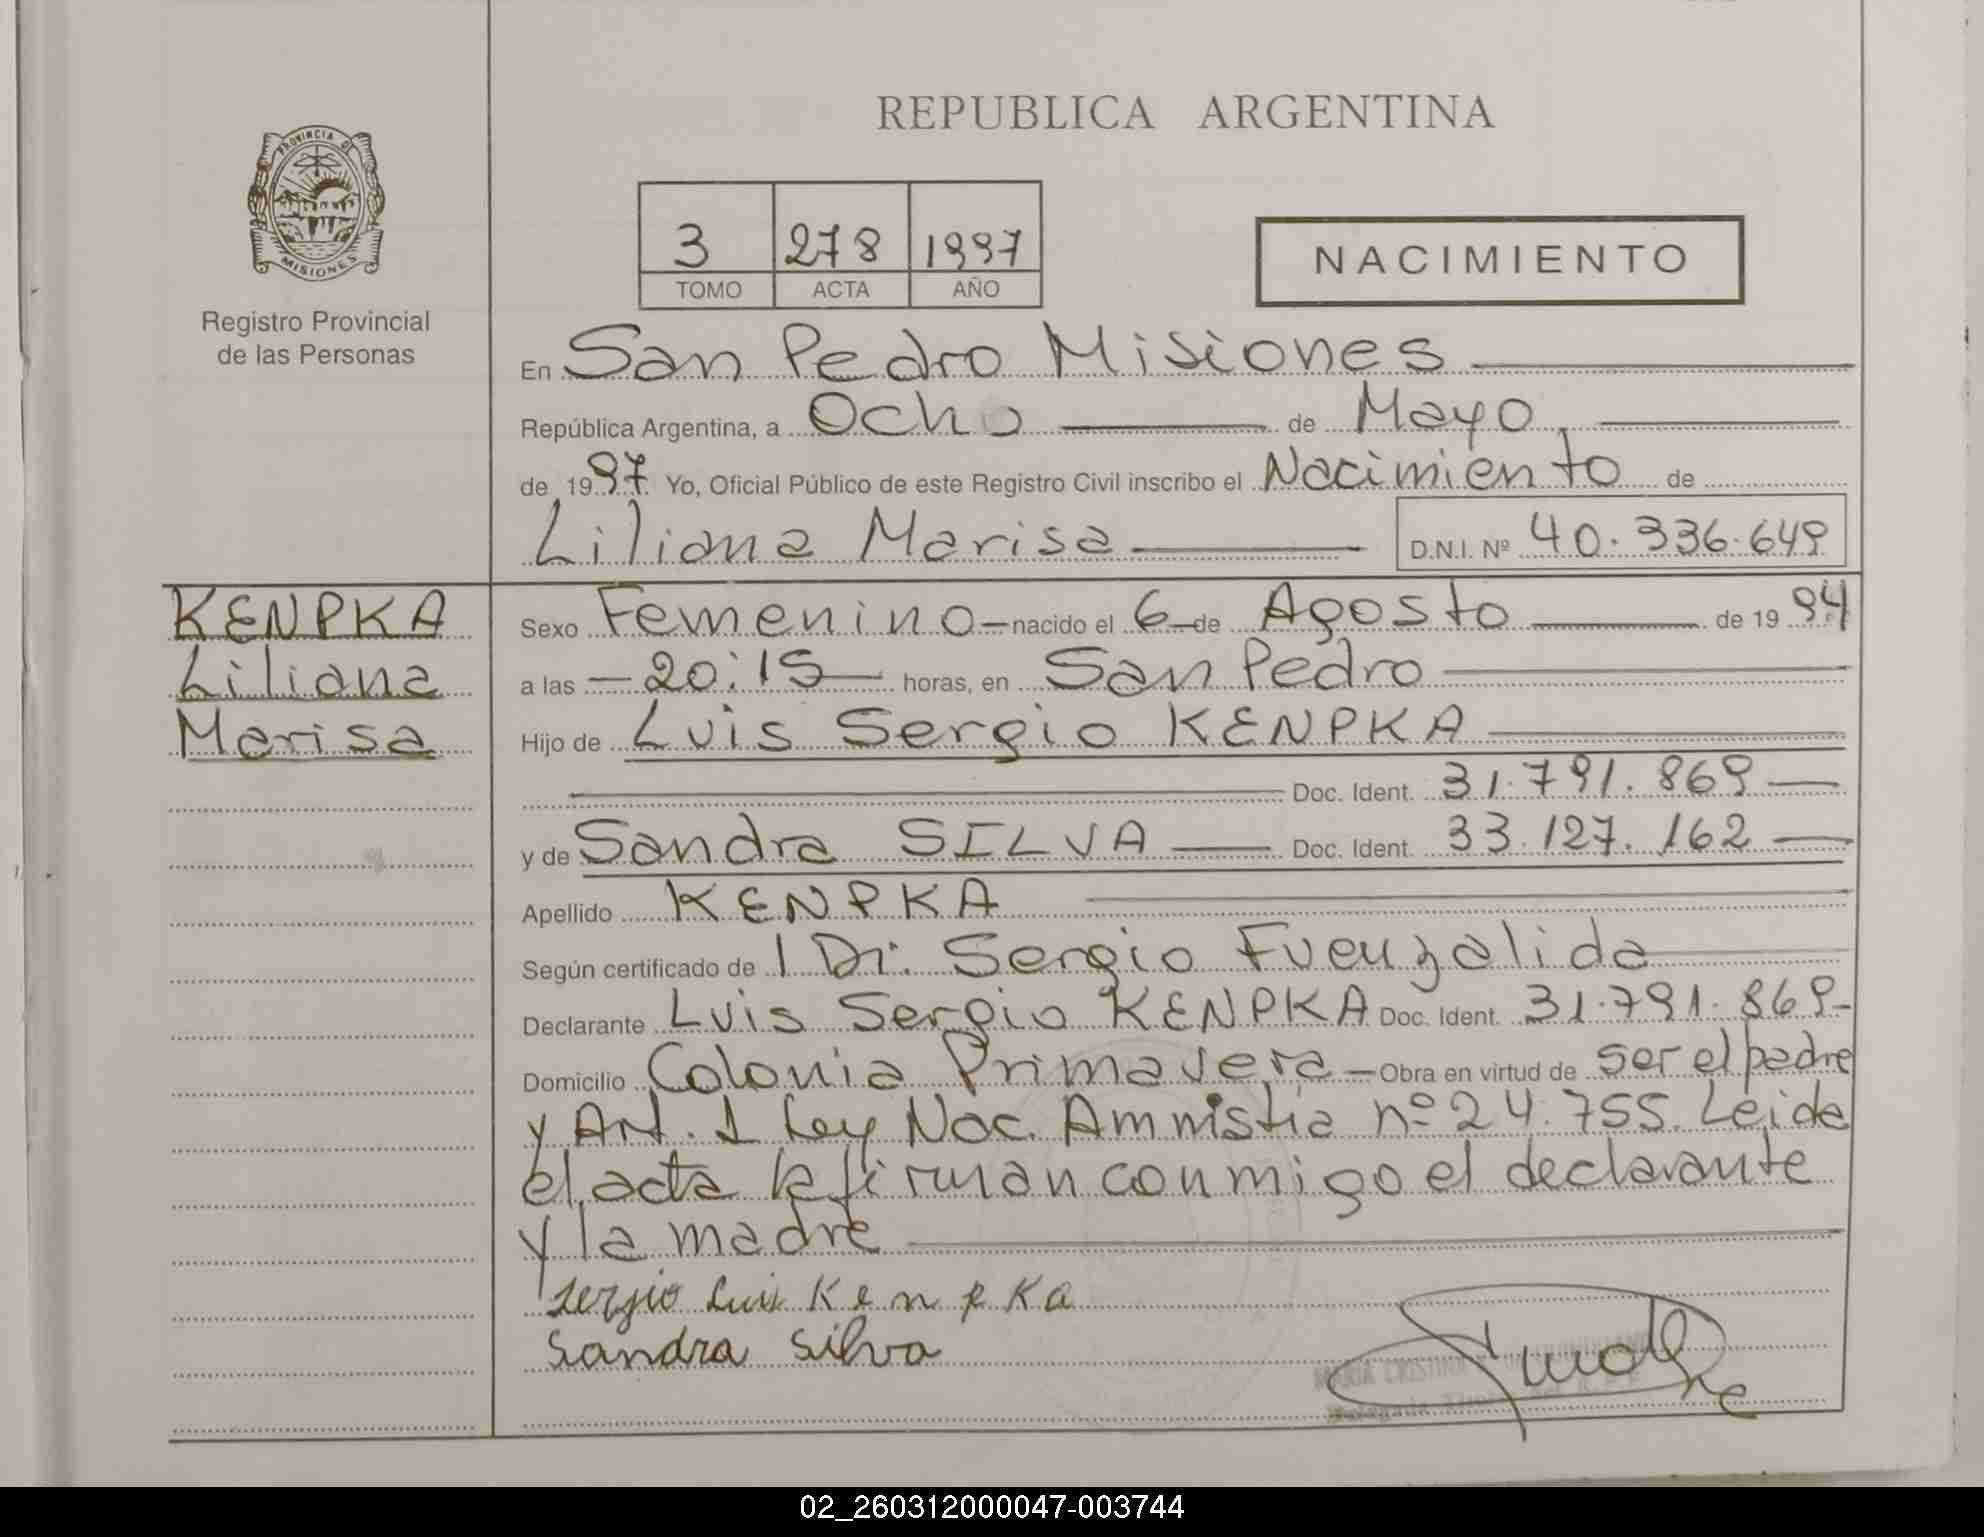 REPUBLICA ARGENTINA
PROVINCIA DE
MISIONES
Registro Provincial
de las Personas
3 278 1997
TOMO ACTA AÑO
NACIMIENTO
En San Pedro Misiones
República Argentina, a Ocho de Mayo
de 1997. Yo, Oficial Público de este Registro Civil inscribo el Nacimiento de
Liliana Marisa D.N.I. Nº 40.336.649
KENPKA
Liliana
Marisa
Sexo Femenino nacido el 6 de Agosto de 1994
a las 20:15 horas, en San Pedro
Hijo de Luis Sergio KENPKA
Doc. Ident. 31.791.869
y de Sandra SILVA Doc. Ident. 33.127.162
Apellido KENPKA
Según certificado de l Dr. Sergio Fuenzalida
Declarante Luis Sergio KENPKA Doc. Ident. 31.791.869-
Domicilio Colonia Primavera Obra en virtud de ser el padre
y Art. 1 Ley Nac. Amnistia nº 24.755. Leida
el acta la firman conmigo el declarante
y la madre
Sergio Luis Kenpka
Sandra Silva
MARIA CRISTINA
02_260312000047-003744